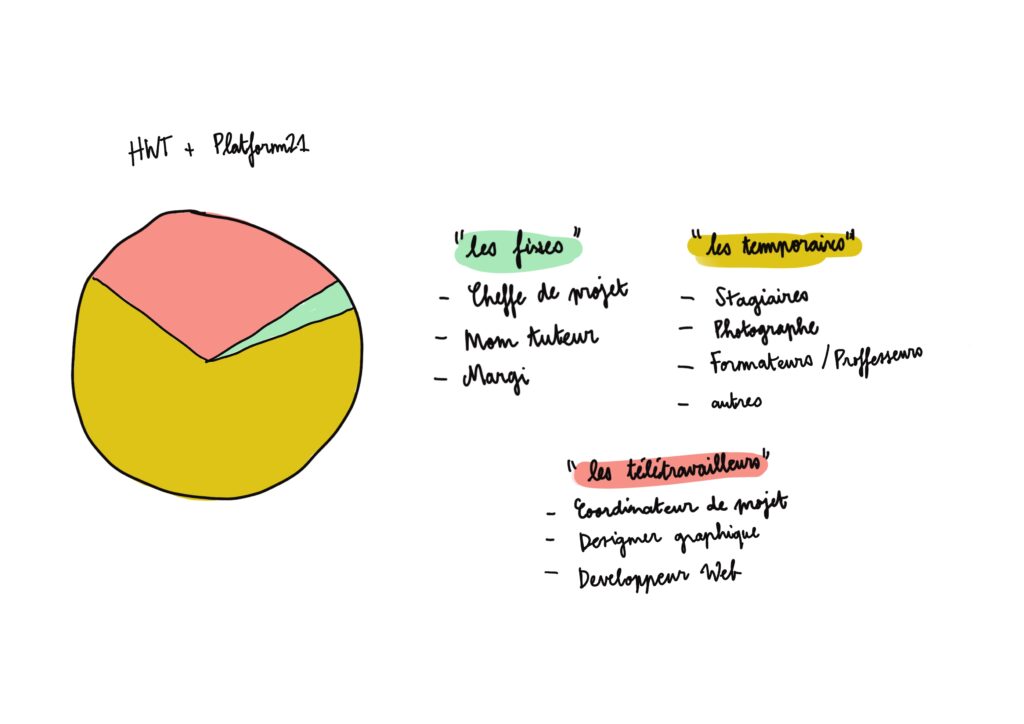 HWT + Platform21
"les fixes"
- Cheffe de projet
- Mon tuteur
- Margi
"les temporaires"
- Stagiaires
- Photographe
- Formateurs / Proffesseurs
- autres
"les télétravailleurs"
- Coordinateur de projet
- Designer graphique
- Developpeur Web